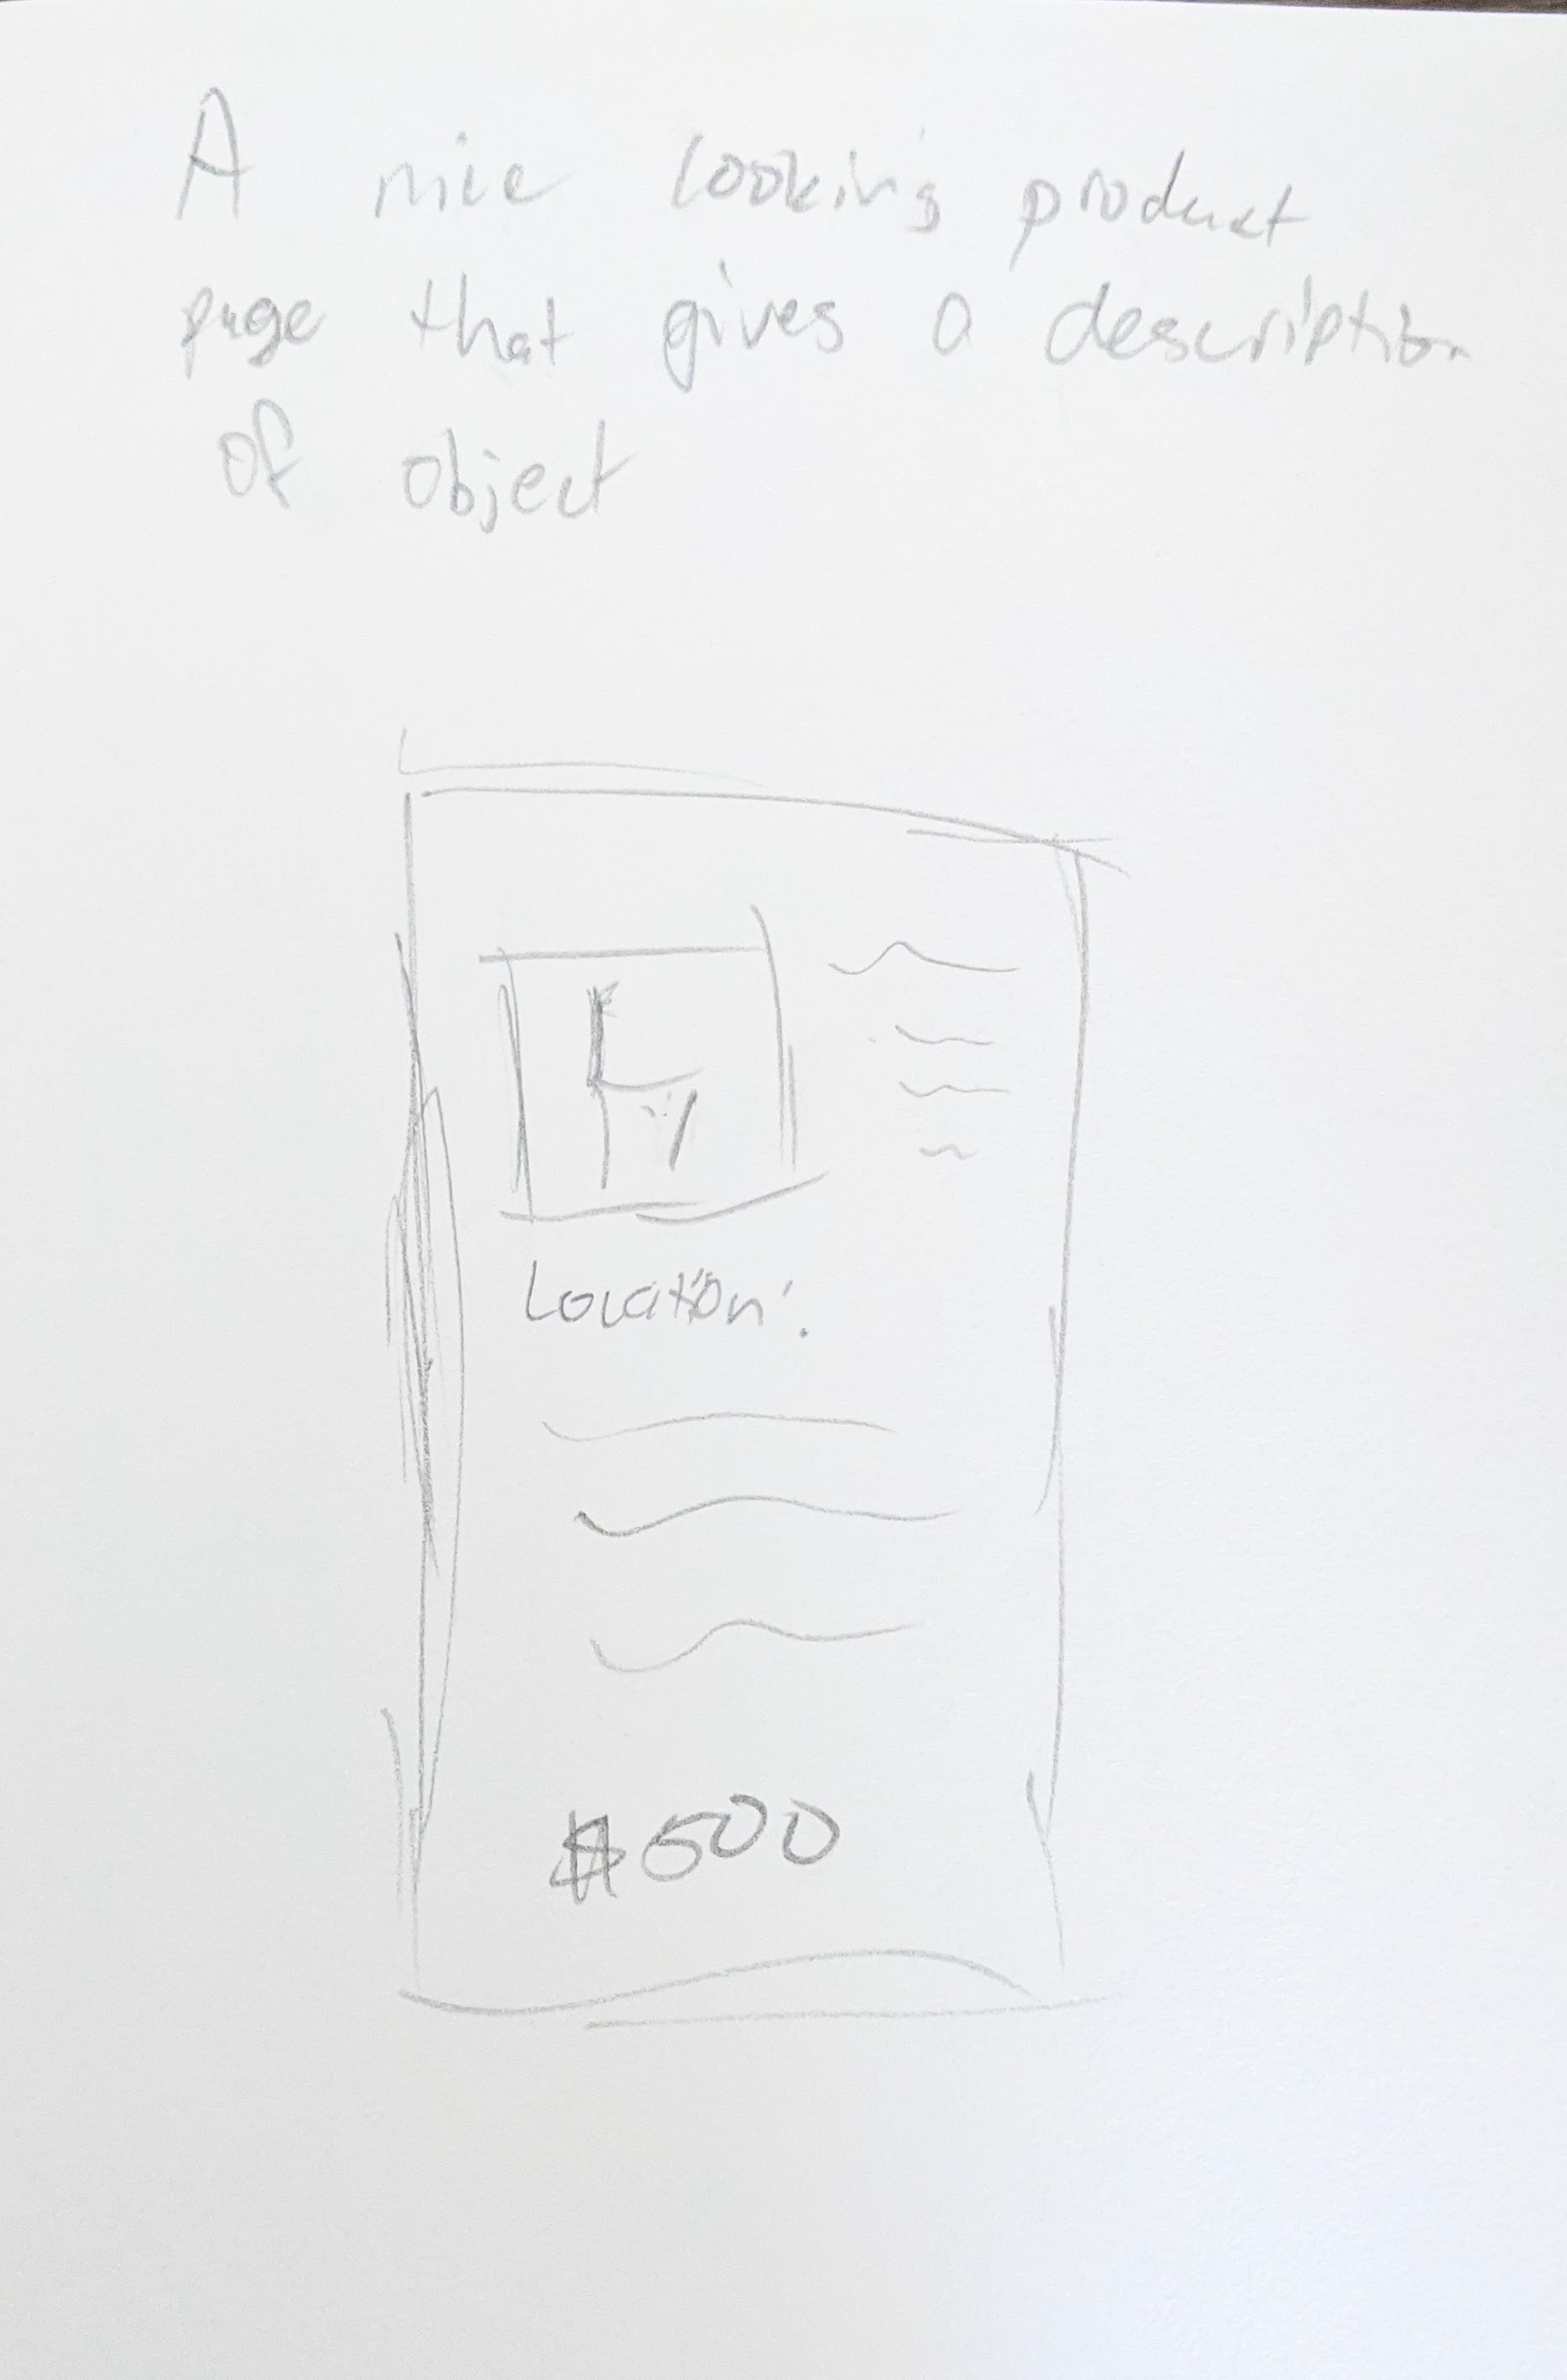 A nice looking product
page that gives a description
of object
Location:
$500